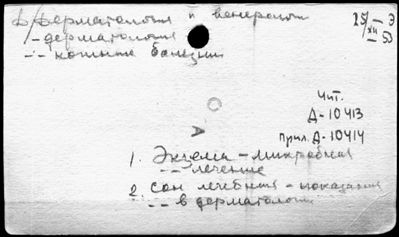 Дерматология и венерология
- дерматология
-:- кожные болезни
25/XII - Э
- 50
Чит.
Д-10413
Прил. Д-10414
1. Экзема - микробная
-:- лечение
2. Сон лечебный - показания
-:- в дерматологии